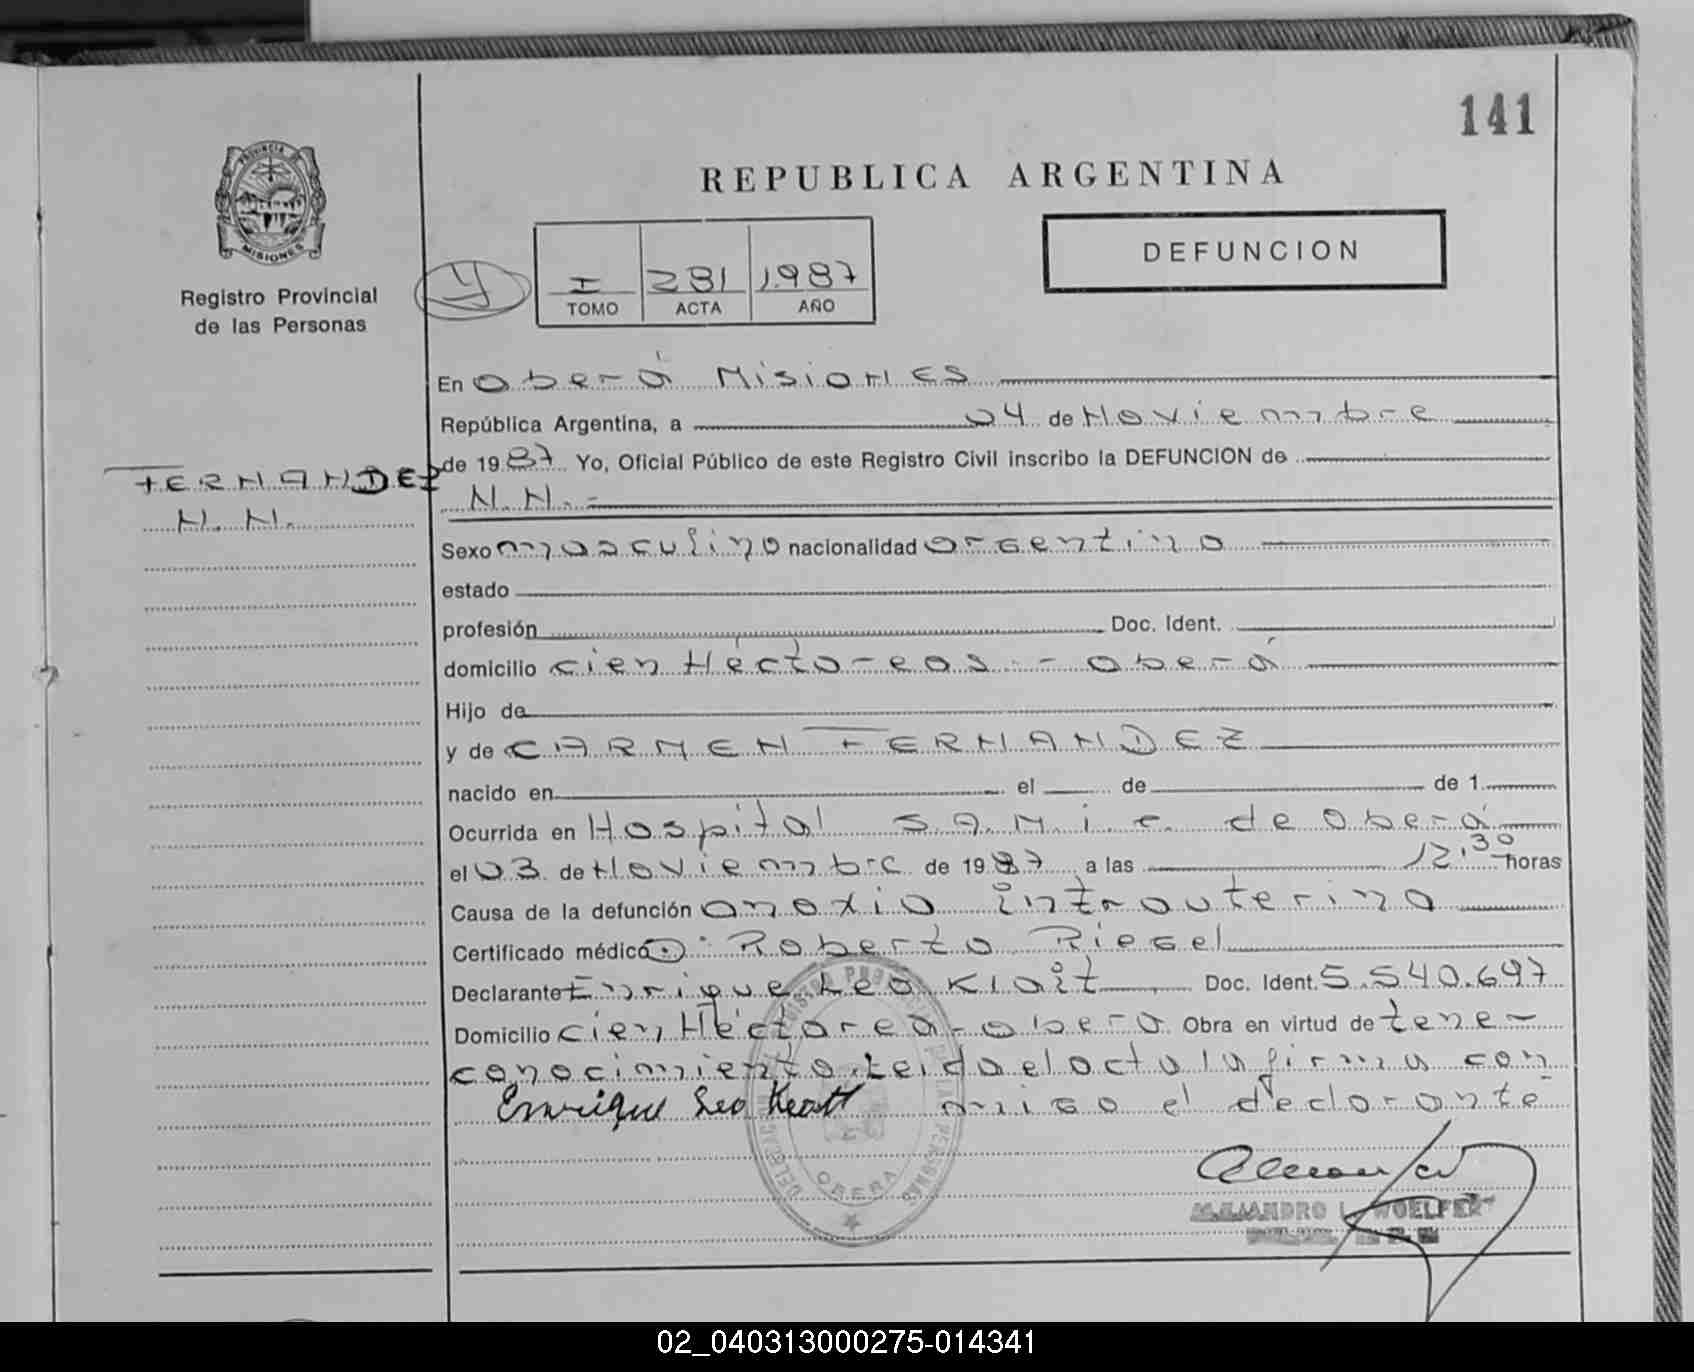 141
PROVINCIA DE
MISIONES
REPUBLICA ARGENTINA
DEFUNCION
Registro Provincial
de las Personas
I 281 1.987
TOMO ACTA AÑO
FERNANDEZ
N. N.
En Oberá Misiones
República Argentina, a 04 de Noviembre
de 1987 Yo, Oficial Público de este Registro Civil inscribo la DEFUNCION de
N. N. -
Sexo masculino nacionalidad argentina
estado
profesión Doc. Ident.
domicilio cien Héctareas - oberá
Hijo de
y de CARMEN FERNANDEZ
nacido en el de de 1
Ocurrida en Hospital S.A.M.i.c. de oberá
el 03 de Noviembre de 1987 a las 12.30 horas
Causa de la defunción anoxia intrauterina
Certificado médico D: Roberto Riegel
Declarante Enrique Leo Klait Doc. Ident. 5.540.697
Domicilio cien Héctarea - oberá Obra en virtud de tener
conocimiento. Leída el acta la firma con
Enrique Leo migo el declarante
OBERA
ALEJANDRO L. WOELFER
02_040313000275-014341